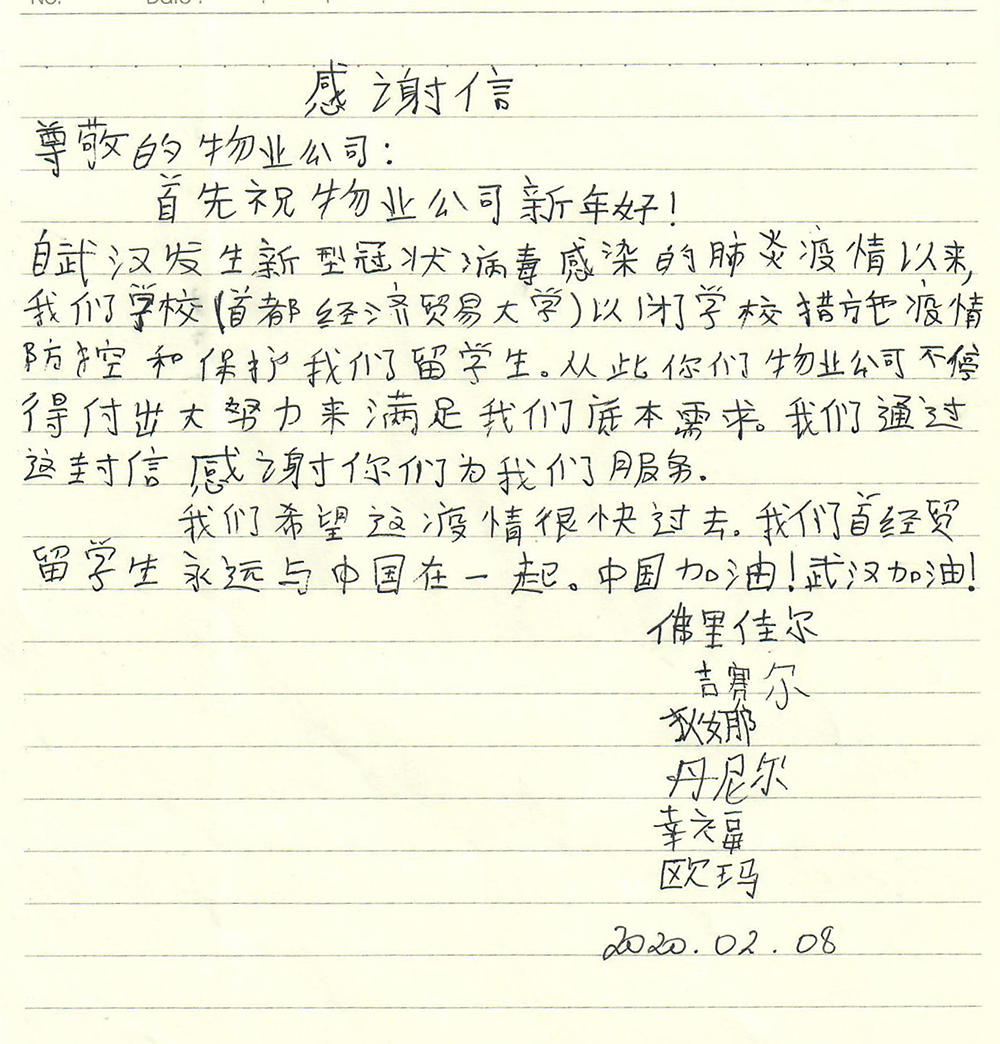 No. Date :
感谢信
尊敬的物业公司：
首先祝物业公司新年好！
自武汉发生新型冠状病毒感染的肺炎疫情以来，
我们学校（首都经济贸易大学）以闭学校措施疫情
防控和保护我们留学生。从此你们物业公司不停
得付出大努力来满足我们底本需求。我们通过
这封信感谢你们为我们服务。
我们希望这疫情很快过去。我们首经贸
留学生永远与中国在一起。中国加油！武汉加油！
佛里佳尔
吉赛尔
狄娜
丹尼尔
幸福
欧玛
2020.02.08